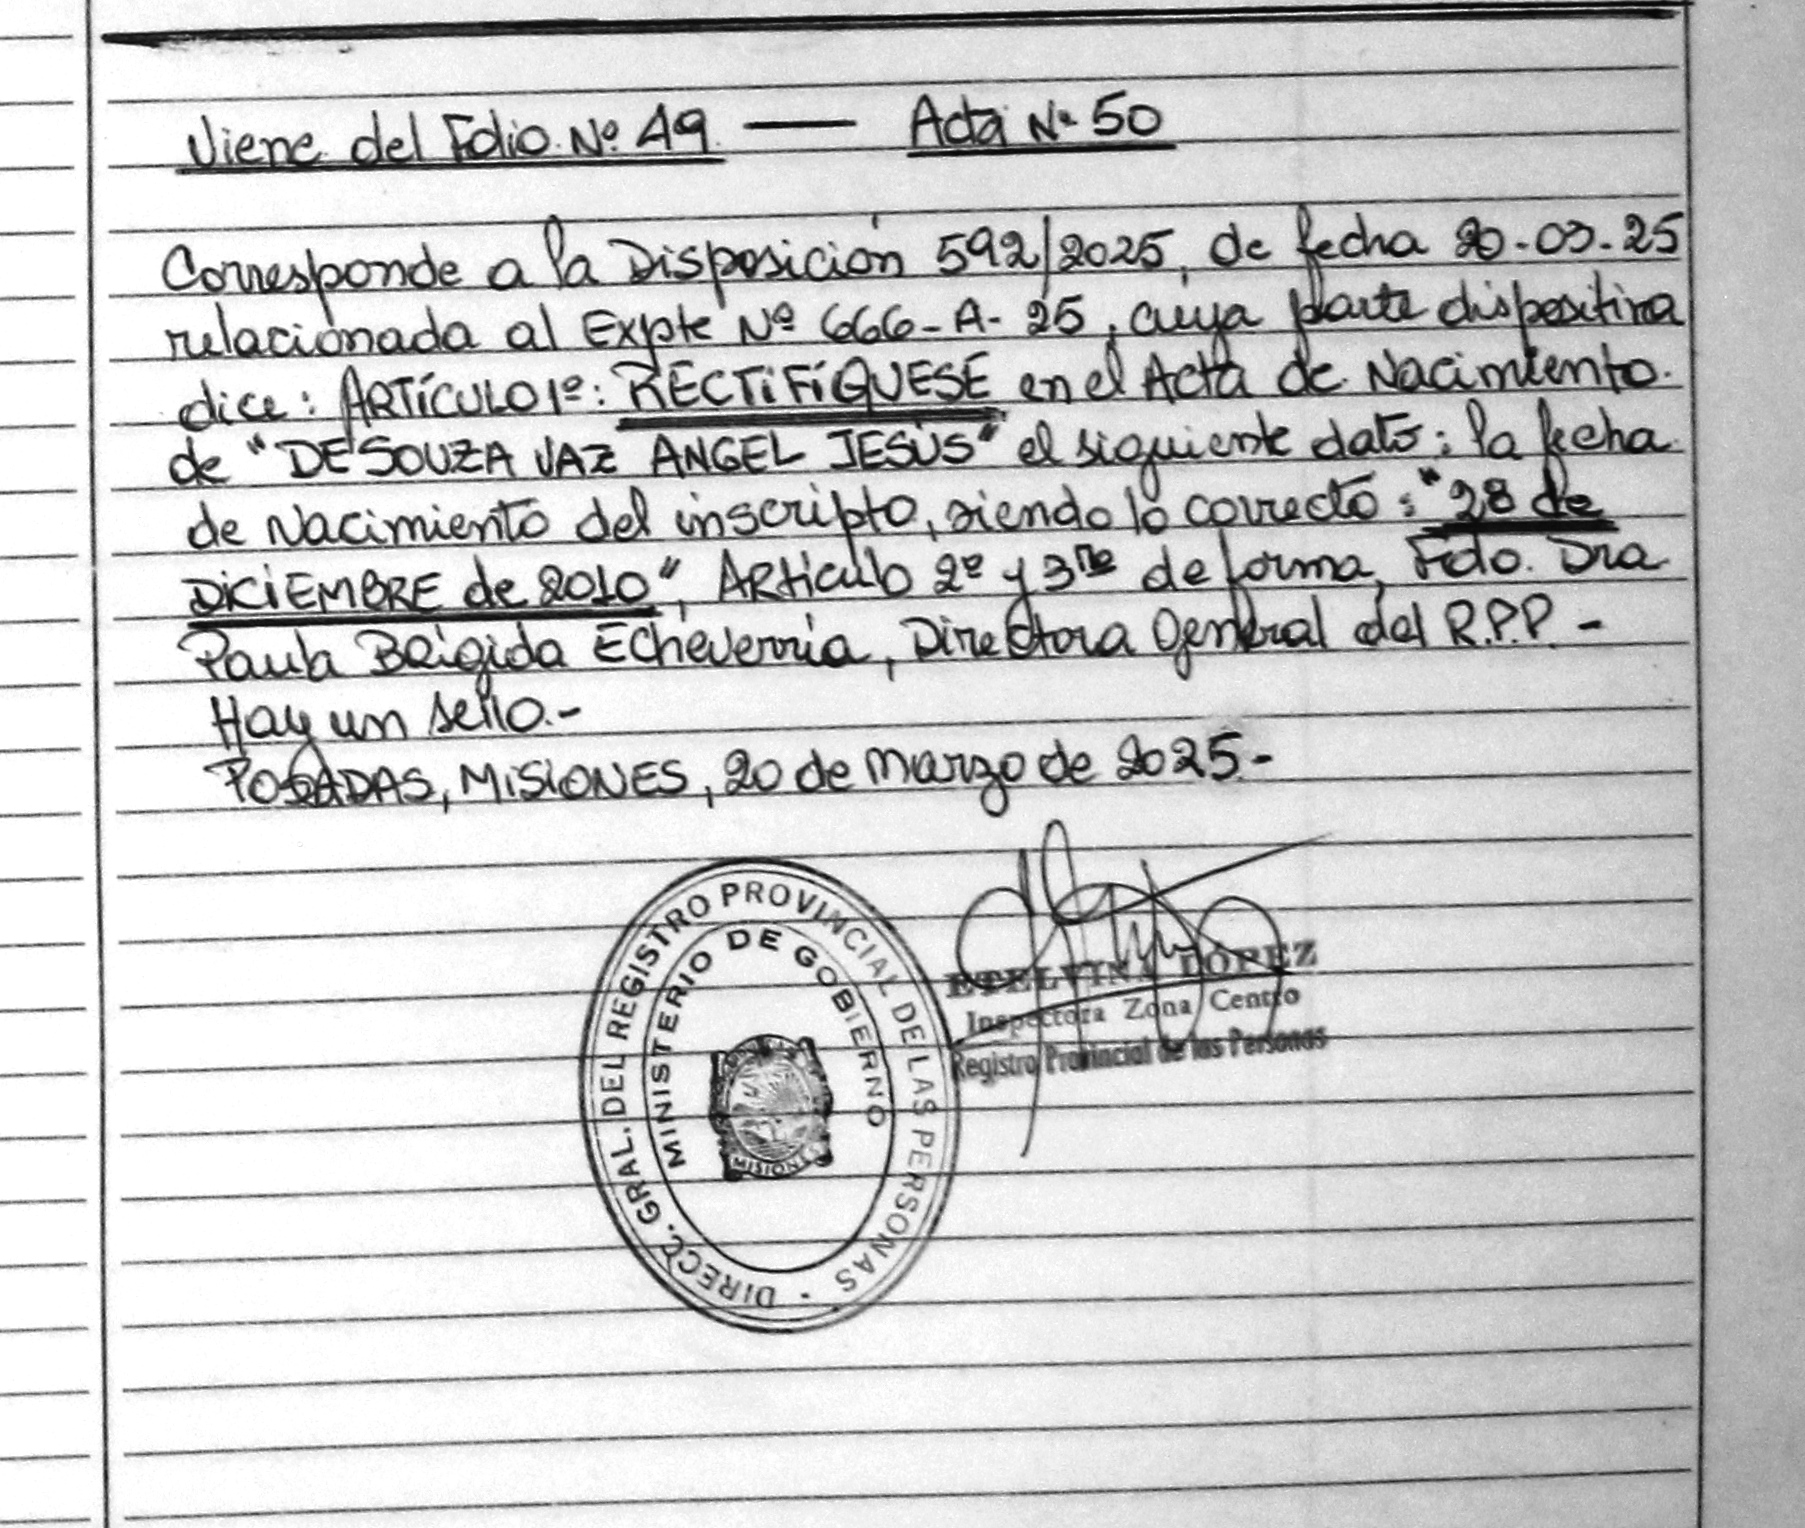 Viene del Folio Nº 49 — Acta Nº 50
Corresponde a la Disposición 592/2025, de fecha 20-03-25
relacionada al Expte Nº 666-A-25, cuya parte dispositiva
dice: ARTÍCULO 1º: RECTIFÍQUESE en el Acta de Nacimiento.
de "DE SOUZA VAZ ANGEL JESÚS" el siguiente dato: la fecha
de Nacimiento del inscripto, siendo lo correcto: "28 de
DICIEMBRE de 2010", Artículo 2º y 3ro de forma, Fdo. Dra
Paula Brígida Echeverría, Directora General del R.P.P -
Hay un sello.-
POSADAS, MISIONES, 20 de marzo de 2025.-
DIRECC. GRAL. DEL REGISTRO PROVINCIAL DE LAS PERSONAS
MINISTERIO DE GOBIERNO
MISIONES
ETELVINA LOPEZ
Inspectora Zona Centro
Registro Provincial de las Personas